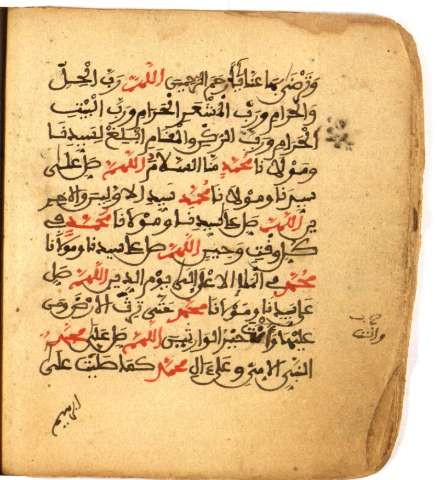 وترضى بها عنا يا ارحم الرحمين اللهم رب الحل
والحرام ورب المشعر الحرام ورب البيت
الحرام ورب الركن والمقام ابلغ لسيدنا
ومولانا محمد منا السلام اللهم صل على
سيدنا ومولانا محمد سيد الاولين والاخر
ين اللهم صل على سيدنا ومولانا محمد في
كل وقت وحين اللهم صل على سيدنا ومولانا
محمد في الملإ الاعلى إلى يوم الدين اللهم صل
على سيدنا ومولانا محمد حتى ترث الارض ومن
عليها وأنت خير الوارثين اللهم صل على محمد
النبي الامي وعلى ال محمد كما صليت على
ابرهيم
وانت